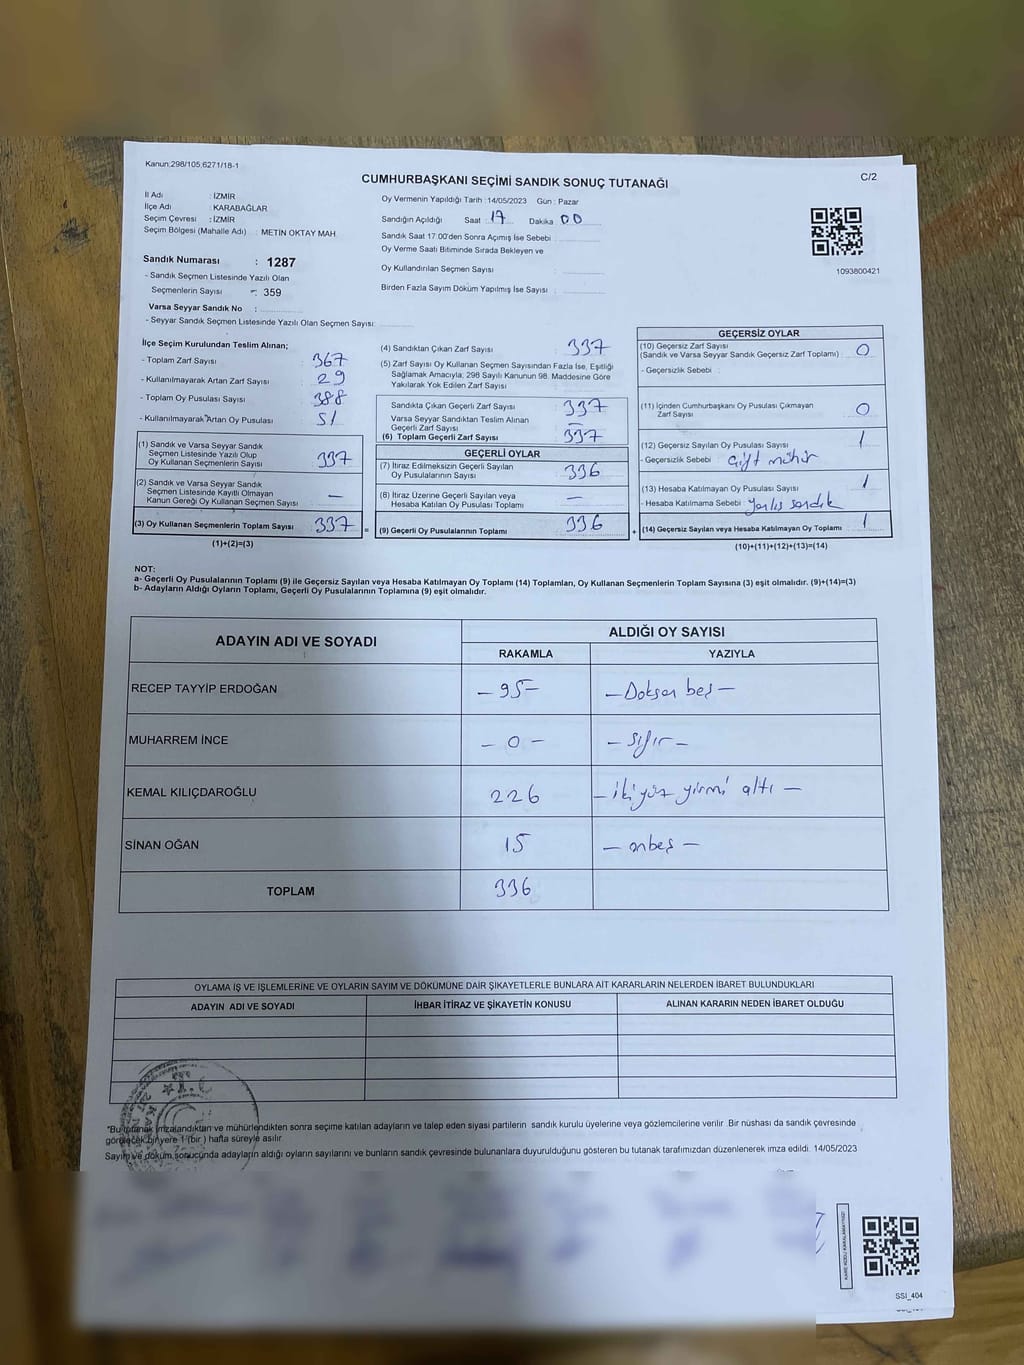 Kanun:298/105,6271/18-1
C/2
CUMHURBAŞKANI SEÇİMİ SANDIK SONUÇ TUTANAĞI
İl Adı : İZMİR
İlçe Adı : KARABAĞLAR
Seçim Çevresi : İZMİR
Seçim Bölgesi (Mahalle Adı) : METİN OKTAY MAH.
Sandık Numarası : 1287
- Sandık Seçmen Listesinde Yazılı Olan
Seçmenlerin Sayısı : 359
Varsa Seyyar Sandık No :
- Seyyar Sandık Seçmen Listesinde Yazılı Olan Seçmen Sayısı:
Oy Vermenin Yapıldığı Tarih : 14/05/2023 Gün : Pazar
Sandığın Açıldığı Saat : 17 Dakika : 00
Sandık Saat 17:00'den Sonra Açımış İse Sebebi :
Oy Verme Saati Bitiminde Sırada Bekleyen ve
Oy Kullandırılan Seçmen Sayısı :
Birden Fazla Sayım Döküm Yapılmış İse Sayısı :
1093800421
İlçe Seçim Kurulundan Teslim Alınan;
- Toplam Zarf Sayısı : 367
- Kullanılmayarak Artan Zarf Sayısı : 29
- Toplam Oy Pusulası Sayısı : 388
- Kullanılmayarak Artan Oy Pusulası : 51
(1) Sandık ve Varsa Seyyar Sandık
Seçmen Listesinde Yazılı Olup
Oy Kullanan Seçmenlerin Sayısı : 337
(2) Sandık ve Varsa Seyyar Sandık
Seçmen Listesinde Kayıtlı Olmayan
Kanun Gereği Oy Kullanan Seçmen Sayısı : —
(3) Oy Kullanan Seçmenlerin Toplam Sayısı : 337 =
(1)+(2)=(3)
(4) Sandıktan Çıkan Zarf Sayısı : 337
(5) Zarf Sayısı Oy Kullanan Seçmen Sayısından Fazla İse, Eşitliği
Sağlamak Amacıyla, 298 Sayılı Kanunun 98. Maddesine Göre
Yakılarak Yok Edilen Zarf Sayısı :
Sandıkta Çıkan Geçerli Zarf Sayısı : 337
Varsa Seyyar Sandıktan Teslim Alınan
Geçerli Zarf Sayısı : —
(6) Toplam Geçerli Zarf Sayısı : 337
GEÇERLİ OYLAR
(7) İtiraz Edilmeksizin Geçerli Sayılan
Oy Pusulalarının Sayısı : 336
(8) İtiraz Üzerine Geçerli Sayılan veya
Hesaba Katılan Oy Pusulası Toplamı : —
(9) Geçerli Oy Pusulalarının Toplamı : 336 +
GEÇERSİZ OYLAR
(10) Geçersiz Zarf Sayısı
(Sandık ve Varsa Seyyar Sandık Geçersiz Zarf Toplamı) : 0
- Geçersizlik Sebebi :
(11) İçinden Cumhurbaşkanı Oy Pusulası Çıkmayan
Zarf Sayısı : 0
(12) Geçersiz Sayılan Oy Pusulası Sayısı : 1
- Geçersizlik Sebebi : Çift mühür
(13) Hesaba Katılmayan Oy Pusulası Sayısı : 1
- Hesaba Katılmama Sebebi : Yanlış sandık
(14) Geçersiz Sayılan veya Hesaba Katılmayan Oy Toplamı : 1
(10)+(11)+(12)+(13)=(14)
NOT:
a- Geçerli Oy Pusulalarının Toplamı (9) ile Geçersiz Sayılan veya Hesaba Katılmayan Oy Toplamı (14) Toplamları, Oy Kullanan Seçmenlerin Toplam Sayısına (3) eşit olmalıdır. (9)+(14)=(3)
b- Adayların Aldığı Oyların Toplamı, Geçerli Oy Pusulalarının Toplamına (9) eşit olmalıdır.
ADAYIN ADI VE SOYADI
ALDIĞI OY SAYISI
RAKAMLA YAZIYLA
RECEP TAYYİP ERDOĞAN - 95 - - Doksan beş -
MUHARREM İNCE - 0 - - Sıfır -
KEMAL KILIÇDAROĞLU 226 - iki yüz yirmi altı -
SİNAN OĞAN 15 - onbeş -
TOPLAM 336
OYLAMA İŞ VE İŞLEMLERİNE VE OYLARIN SAYIM VE DÖKÜMÜNE DAİR ŞİKAYETLERLE BUNLARA AİT KARARLARIN NELERDEN İBARET BULUNDUKLARI
ADAYIN ADI VE SOYADI İHBAR İTİRAZ VE ŞİKAYETİN KONUSU ALINAN KARARIN NEDEN İBARET OLDUĞU
T.C.
*Bu tutanak imzalandıktan ve mühürlendikten sonra seçime katılan adayların ve talep eden siyasi partilerin sandık kurulu üyelerine veya gözlemcilerine verilir. Bir nüshası da sandık çevresinde
görülecek bir yere 1 (bir) hafta süreyle asılır.
Sayım ve döküm sonucunda adayların aldığı oyların sayılarını ve bunların sandık çevresinde bulunanlara duyurulduğunu gösteren bu tutanak tarafımızdan düzenlenerek imza edildi. 14/05/2023
SSI_404